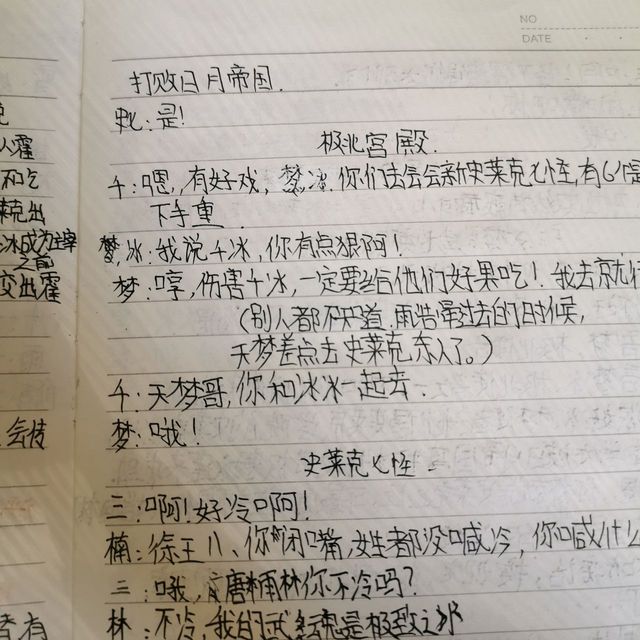 NO
DATE
打败日月帝国.
:是!
极北宫殿.
千:嗯,有好戏,梦冰你们去会会新史莱克七怪,有6个
下手重
梦,冰:我说千冰,你有点狠阿!
梦:哼,伤害千冰,一定要给他们好果吃!我去
(别人都不知道,雨浩带过去的时候,
天梦差点去史莱克杀人了。)
千:天梦哥,你和冰冰一起去.
梦:哦!
史莱克七怪
三:啊!好冷啊!
楠:徐王八、你闭嘴,女生者都没喊冷,你喊什么
三:哦,唐雨林你不冷吗?
林:不冷,我的武魂是极致之
人霍
和乞
莱克出
冰成为
之前
变出霍
会技
者有